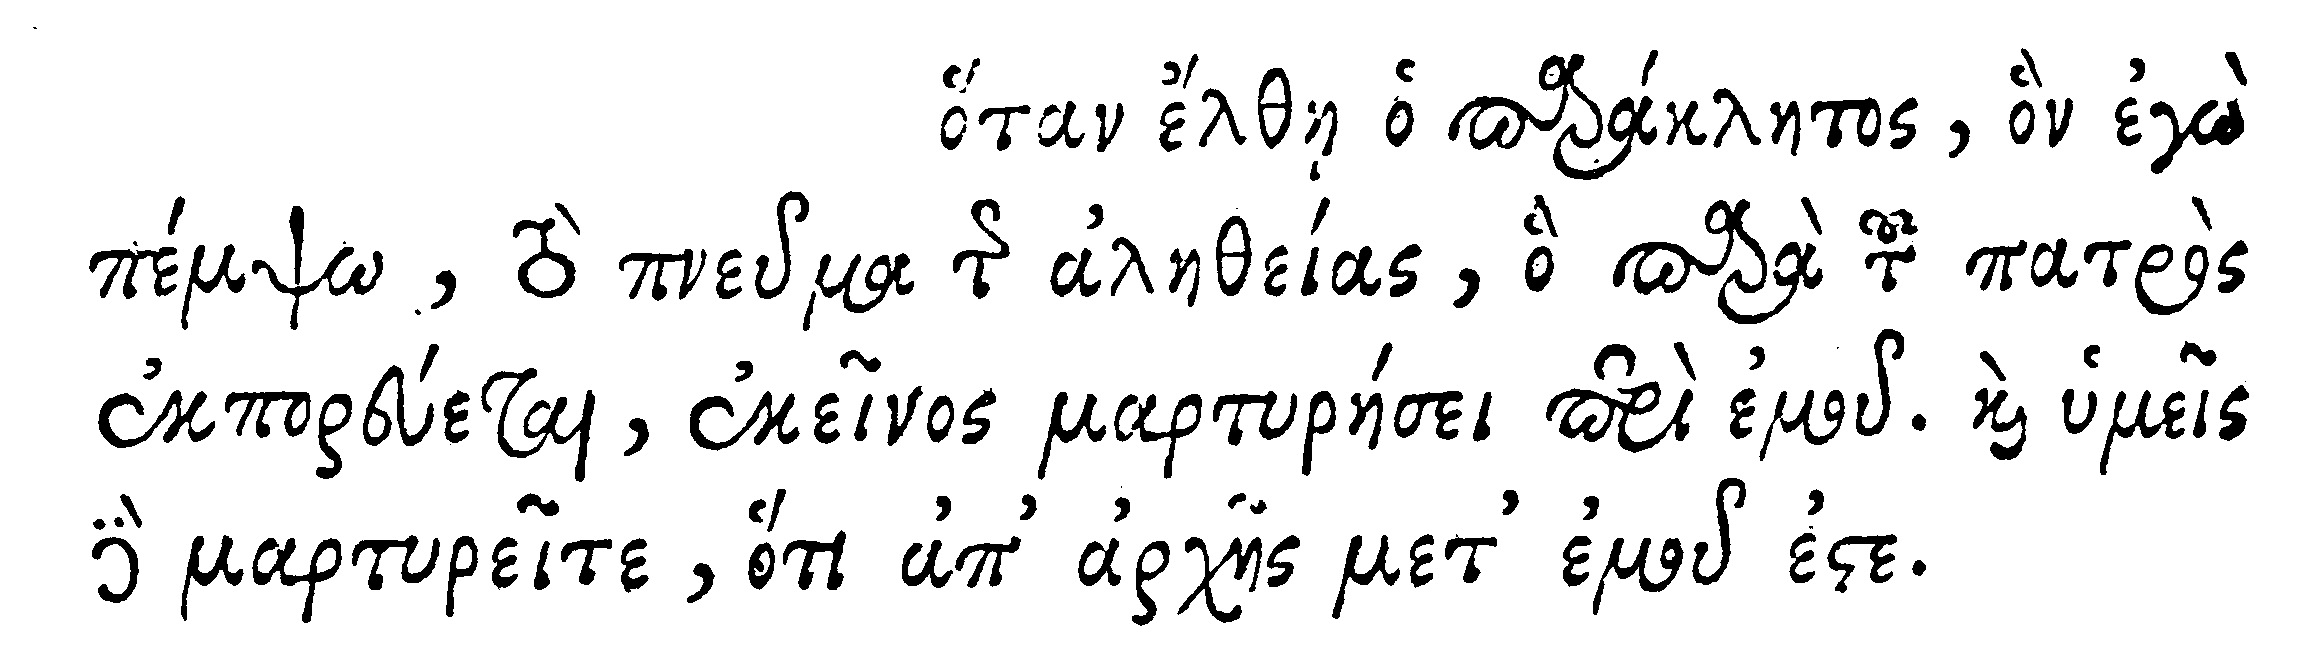 ὅταν ἔλθῃ ὁ παράκλητος, ὃν ἐγὼ
πέμψω, τὸ πνεῦμα τῆς ἀληθείας, ὃ παρὰ τοῦ πατρὸς
ἐκπορεύεται, ἐκεῖνος μαρτυρήσει περὶ ἐμοῦ. καὶ ὑμεῖς
δὲ μαρτυρεῖτε, ὅτι ἀπ' ἀρχῆς μετ' ἐμοῦ ἐστε.